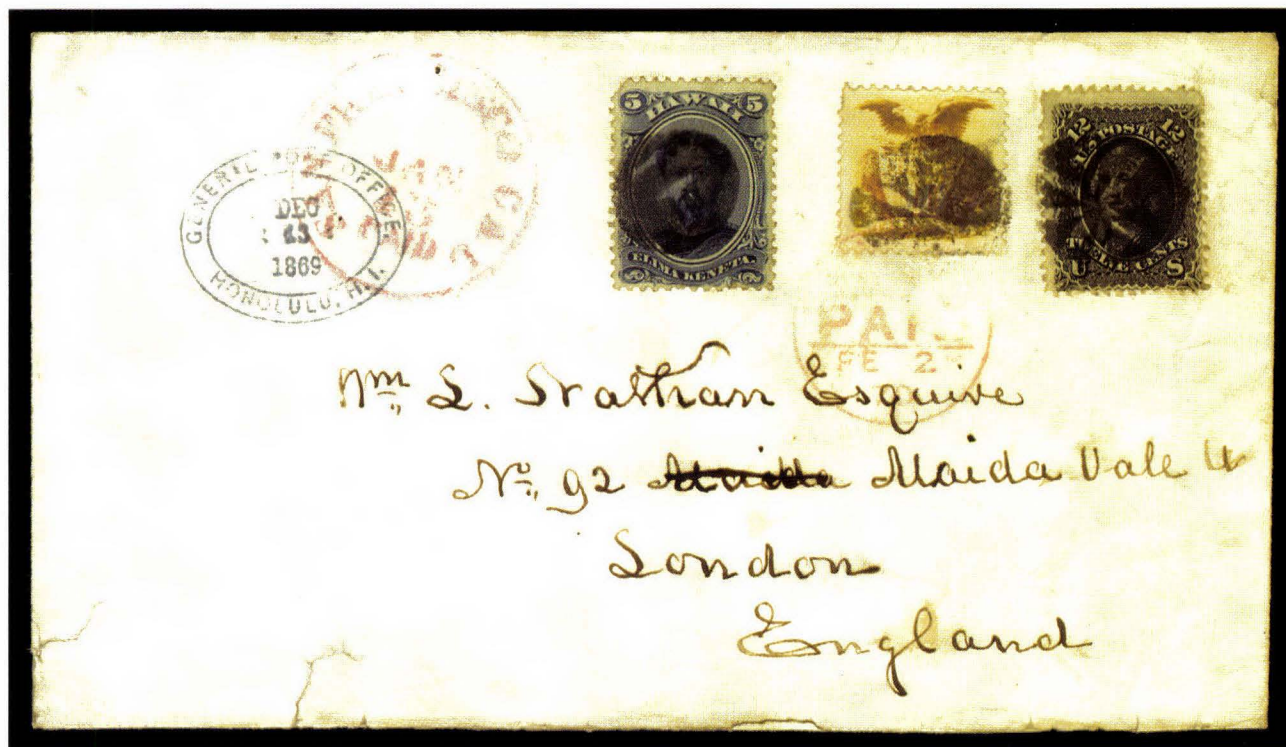 GENERAL POST OFFICE
DEC
23
1869
HONOLULU, H.I.
JAN
CAL
5 HAWAII 5
ELIMA KENETA.
12 12
U.S. POSTAGE
TWELVE CENTS
U S
PAID
FE 2
Wm L. Nathan Esquire
No. 92 Maida Vale W
London
England